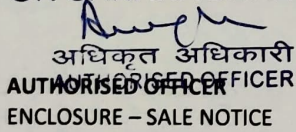 अधिकृत अधिकारी
AUTHORISED OFFICER
AUTHORISED OFFICER
ENCLOSURE – SALE NOTICE